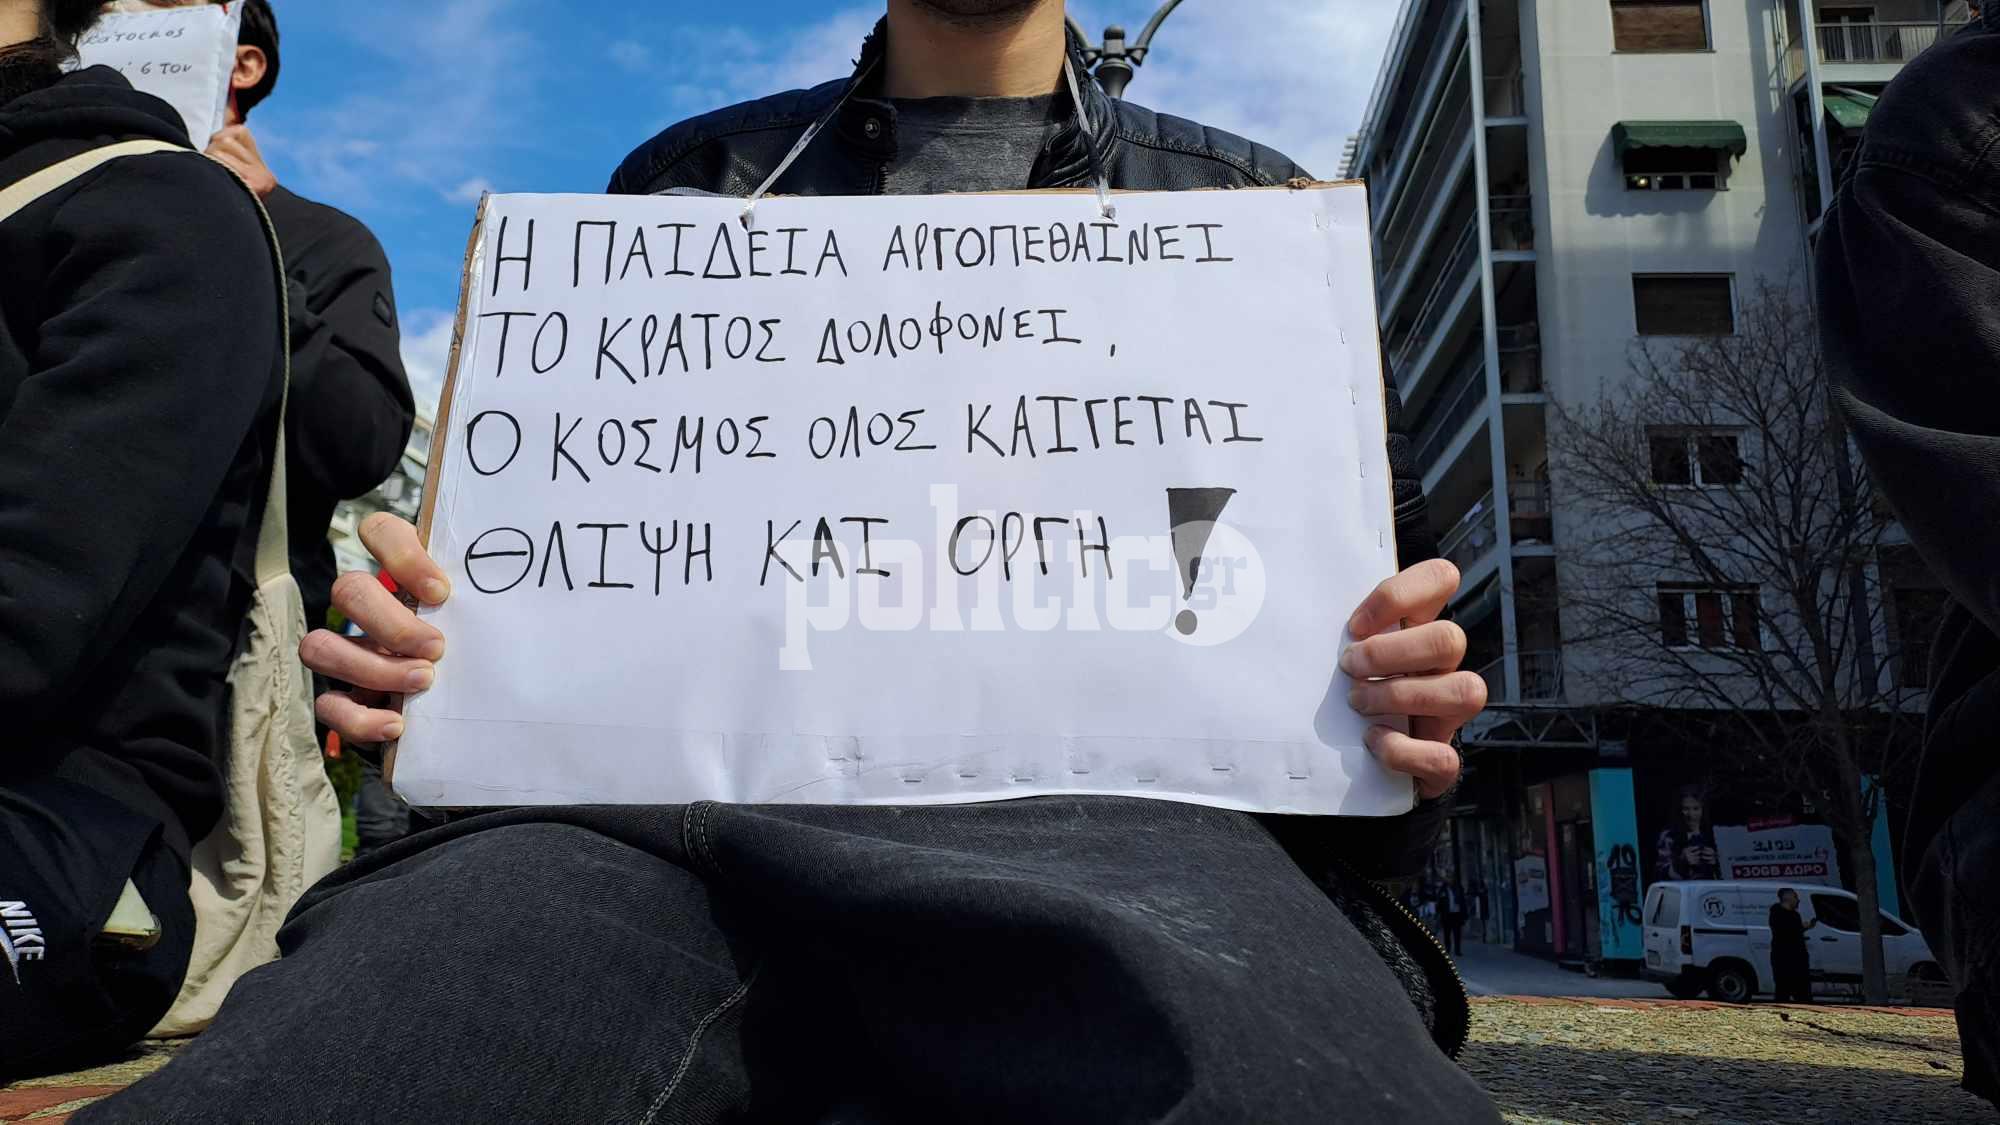 ΚΡΑΤΟΣ ΚΟΣ
6 ΤΟΥ
Η ΠΑΙΔΕΙΑ ΑΡΓΟΠΕΘΑΙΝΕΙ
ΤΟ ΚΡΑΤΟΣ ΔΟΛΟΦΟΝΕΙ,
Ο ΚΟΣΜΟΣ ΟΛΟΣ ΚΑΙΓΕΤΑΙ
ΘΛΙΨΗ ΚΑΙ ΟΡΓΗ!
politic.gr
NIKE
+30GB ΔΩΡΟ